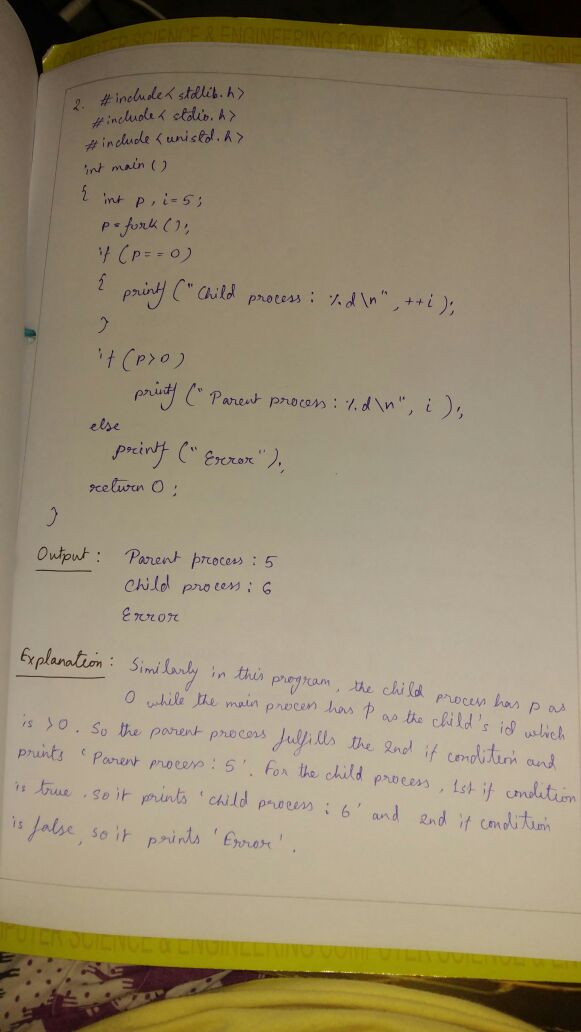 COMPUTER SCIENCE & ENGINEERING COMPUTER SCIENCE & ENGINE
2. #include<stdlib.h>
#include<stdio.h>
#include<unistd.h>
int main()
{ int p, i=5;
p=fork();
if (p==0)
{ printf ("Child process : %d\n", ++i);
}
if (p>0)
printf ("Parent process : %d\n", i );
else
printf ("Error");
return 0;
}
Output : Parent process : 5
Child process : 6
Error
Explanation : Similarly in this program, the child process has p as
0 while the main process has p as the child's id which
is >0. So the parent process fulfills the 2nd if condition and
prints 'Parent process : 5'. For the child process, 1st if condition
is true. so it prints 'child process : 6' and 2nd if condition
is false, so it prints 'Error'.
PUTER SCIENCE & ENGINEERING COMPUTER SCIENCE &